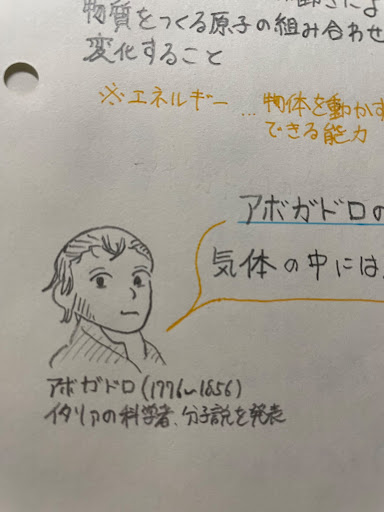 物質をつくる原子の組み合わせ
変化すること
※エネルギー…物体を動かす
できる能力
アボガドロの
気体の中には
アボガドロ(1776~1856)
イタリアの科学者、分子説を発表